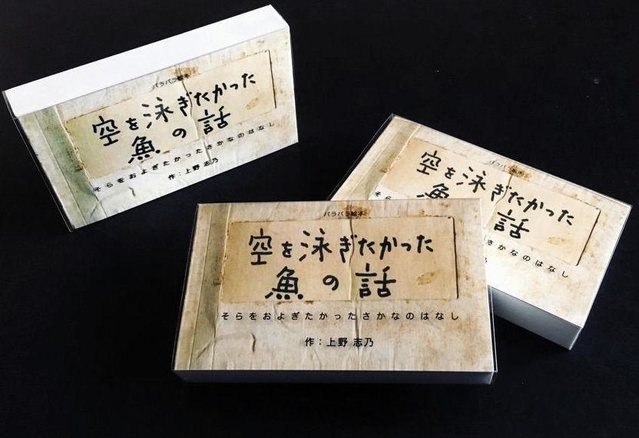 パラパラ絵本
空を泳ぎたかった
魚の話
そらをおよぎたかったさかなのはなし
作：上野 志乃
パラパラ絵本
空を泳ぎたかった
魚の話
さかなのはなし
パラパラ絵本
空を泳ぎたかった
魚の話
そらをおよぎたかったさかなのはなし
作：上野 志乃